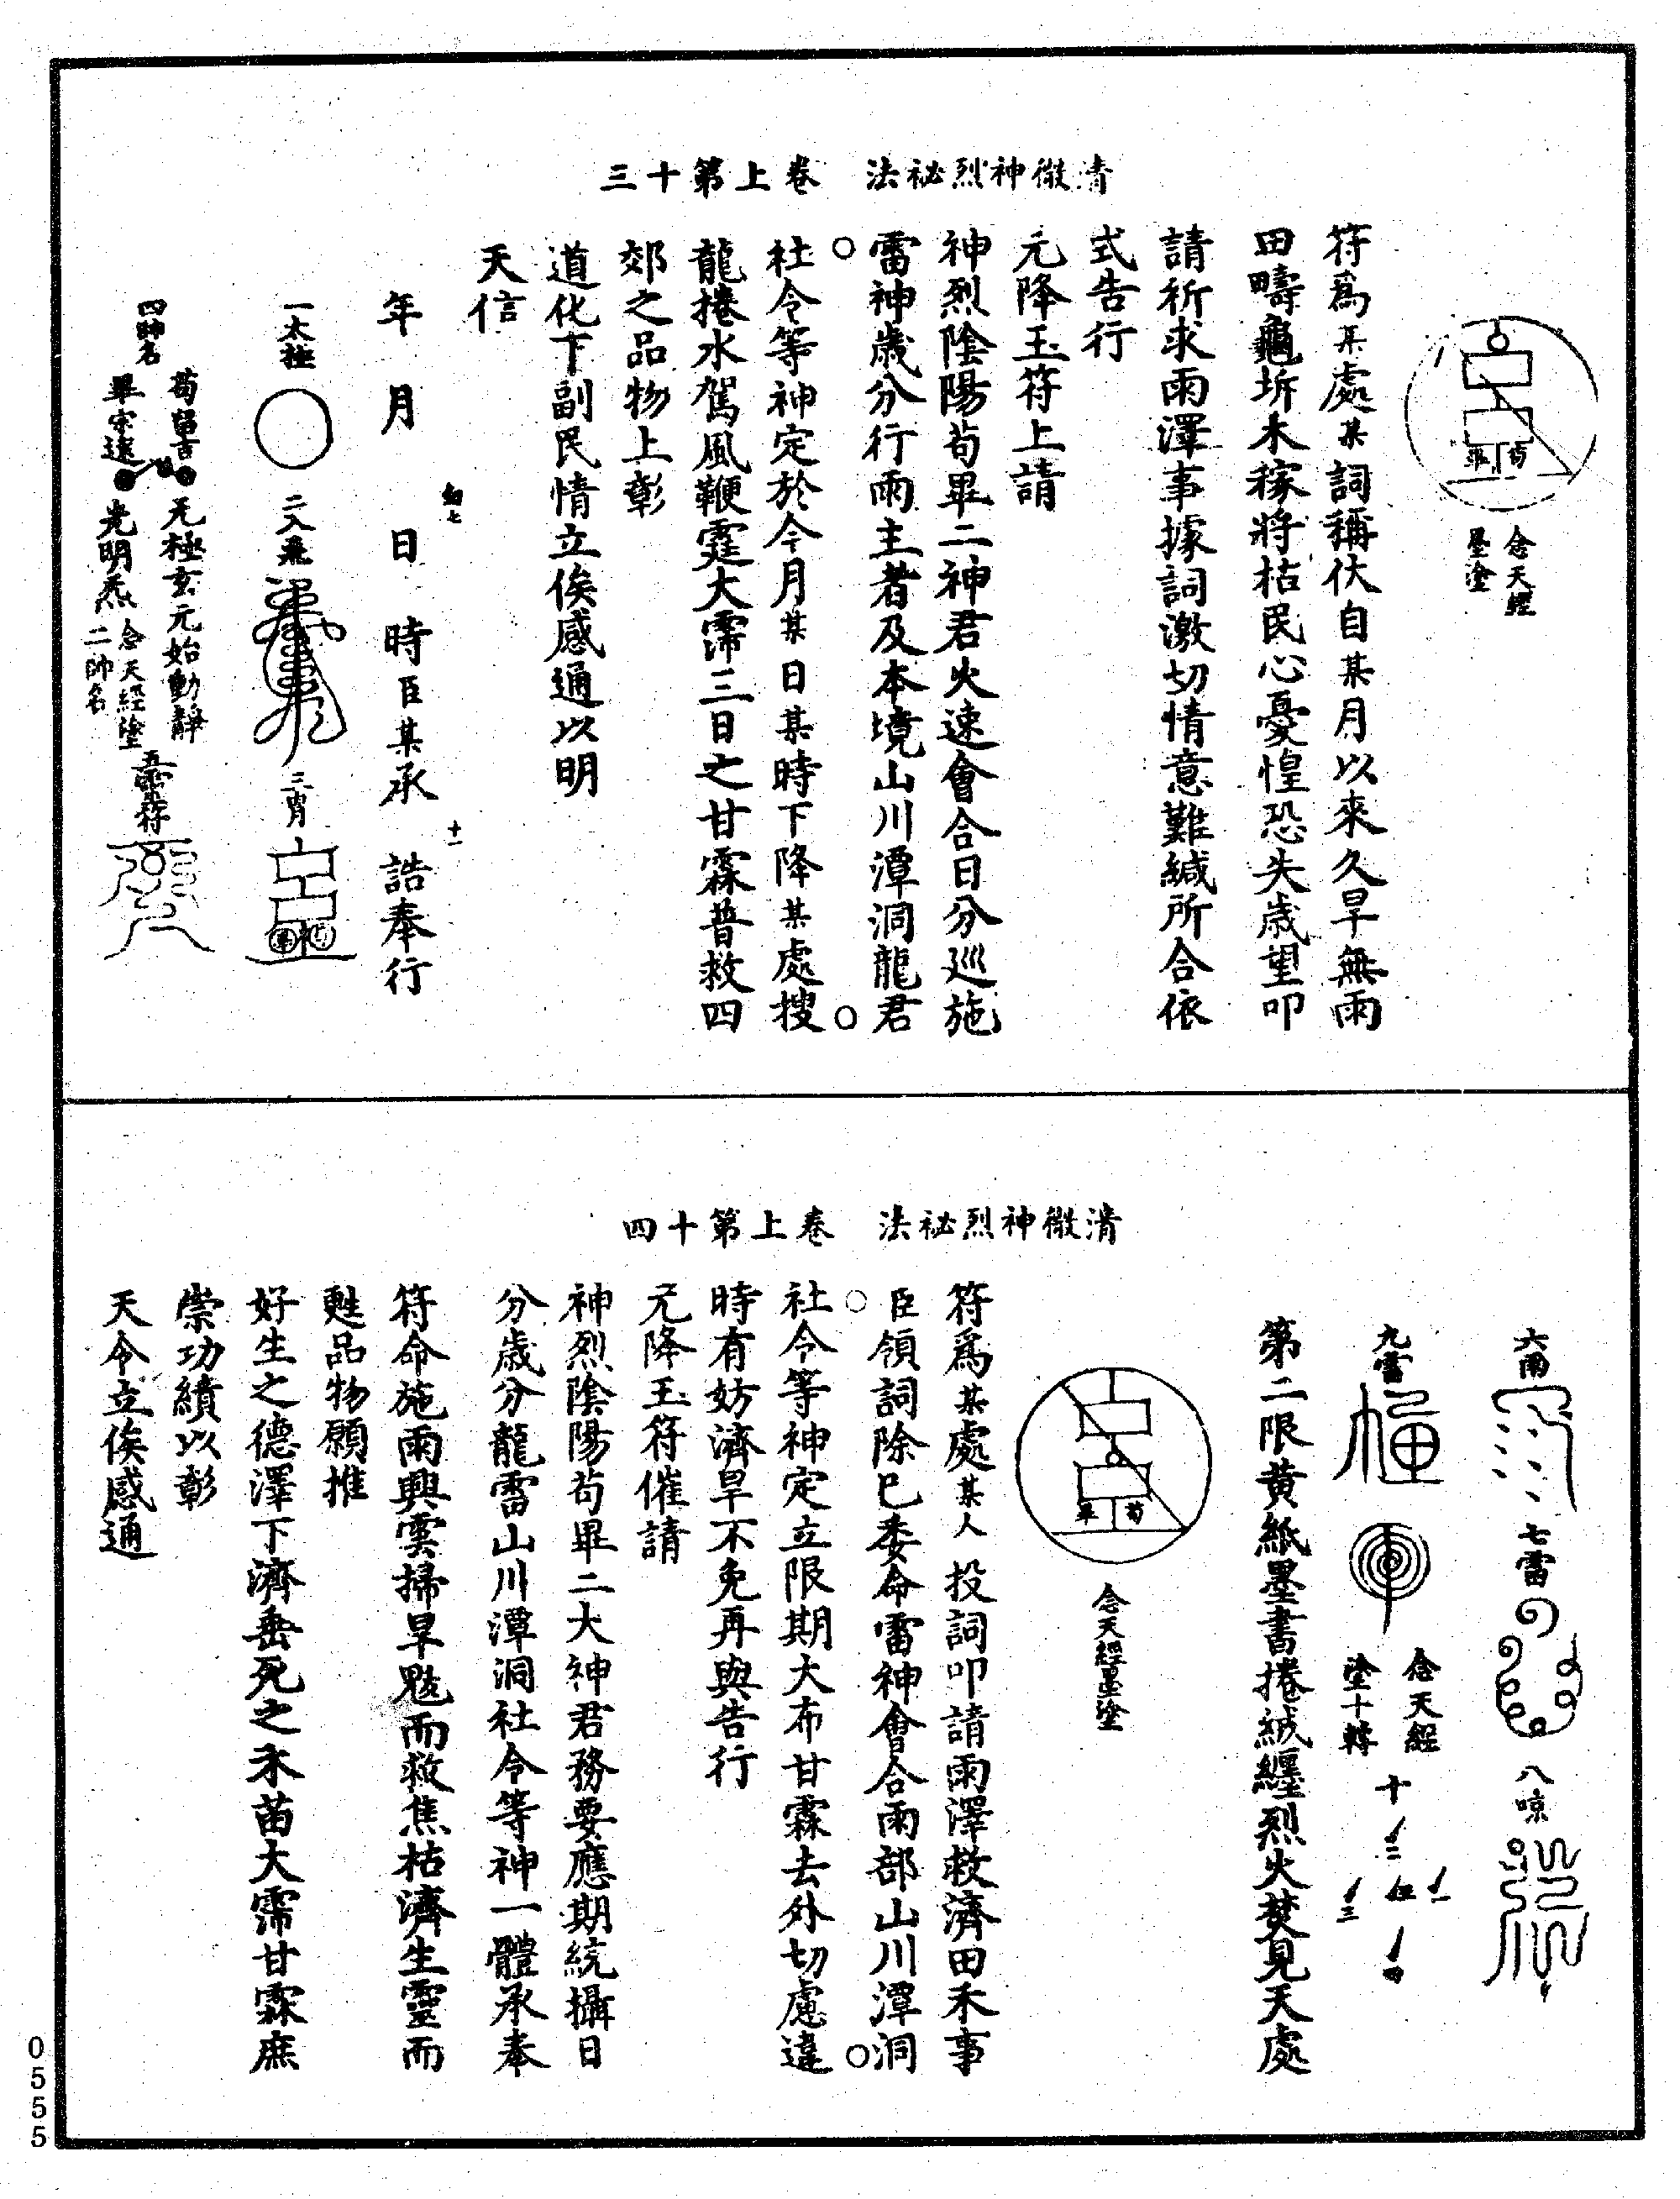 清微神烈祕法　卷上第十三
荀
畢
念天經
墨塗
符爲某處某詞稱伏自某月以來久旱無雨
田疇龜坼木稼將枯民心憂惶恐失歲望叩
請祈求雨澤事據詞激切情意難緘所合依
式告行
元降玉符上請
神烈陰陽荀畢二神君火速會合日分巡施
雷神歲分行雨主者及本境山川潭洞龍君
社令等神定於今月某日某時下降某處搜
龍捲水駕風鞭霆大霈三日之甘霖普救四
郊之品物上彰
道化下副民情立俟感通以明
天信
年　月　日　時臣某承　誥奉行
十一
一太極
三宵
四帥名
荀留吉
畢宗遠
无極玄元始動靜
光明炁
念天經塗
二帥名
清微神烈祕法　卷上第十四
六雨
七雷
八嗃
九雷
念天經
塗十轉
十
一
二
三
四
第二限黃紙墨書捲絨纏烈火焚見天處
荀
畢
念天經墨塗
符爲某處某人投詞叩請雨澤救濟田禾事
臣領詞除已委命雷神會合雨部山川潭洞
社令等神定立限期大布甘霖去外切慮違
時有妨濟旱不免再與告行
元降玉符催請
神烈陰陽荀畢二大神君務要應期統攝日
分歲分龍雷山川潭洞社令等神一體承奉
符命施雨興雲掃旱魃而救焦枯濟生靈而
甦品物願推
好生之德澤下濟垂死之禾苗大霈甘霖庶
崇功績以彰
天令立俟感通
0555